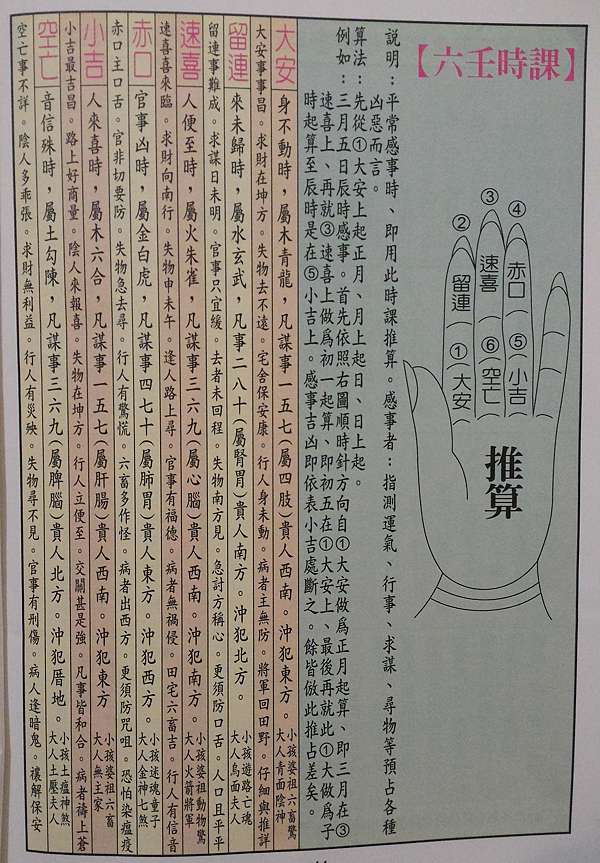 【六壬時課】
說明：平常感事時、即用此時課推算。感事者：指測運氣、行事、求謀、尋物等預占各種
凶惡而言。
算法：先從①大安上起正月、月上起日、日上起。
例如：三月五日辰時感事。首先依照右圖順時針方向自①大安做爲正月起算、即三月在③
速喜上、再就③速喜上做爲初一起算、即初五在①大安上、最後再就此①大做爲子
時起算至辰時是在⑤小吉上。感事吉凶即依表小吉處斷之。餘皆倣此推占差矣。
②
③
④
留連
速喜
赤口
①大安
⑥空亡
⑤小吉
推算
大安
身不動時，屬木青龍，凡謀事一五七(屬四肢)貴人西南。沖犯東方。
小孩婆祖六畜驚
大人青面陰神
大安事事昌。求財在坤方。失物去不遠。宅舍保安康。行人身未動。病者主無防。將軍回田野。仔細與推詳
留連
來未歸時，屬水玄武，凡事二八十(屬腎胃)貴人南方。沖犯北方。
小孩遊路亡魂
大人烏面夫人
留連事難成。求謀日未明。官事只宜緩。去者未回程。失物南方見。急討方稱心。更須防口舌。人口且平平
速喜
人便至時，屬火朱雀，凡謀事三六九(屬心腦)貴人西南。沖犯南方。
小孩婆祖動物驚
大人火箭將軍
速喜喜來臨。求財向南行。失物申未午。逢人路上尋。官事有福德。病者無禍侵。田宅六畜吉。行人有信音
赤口
官事凶時，屬金白虎，凡謀事四七十(屬肺胃)貴人東方。沖犯西方。
小孩迷魂童子
大人金神七煞
赤口主口舌。官非切要防。失物急去尋。行人有驚慌。六畜多作怪。病者出西方。更須防咒咀。恐怕染瘟疫
小吉
人來喜時，屬木六合，凡謀事一五七(屬肝腸)貴人西南。沖犯東方
小孩婆祖六畜
大人無主家
小吉最吉昌。路上好商量。陰人來報喜。失物在坤方。行人立便至。交關甚是強。凡事皆和合。病者禱上蒼
空亡
音信殊時，屬土勾陳，凡謀事三六九(屬脾腦)貴人北方。沖犯厝地。
小孩土瘟神煞
大人土壓夫人
空亡事不詳。陰人多乖張。求財無利益。行人有災殃。失物尋不見。官事有刑傷。病人逢暗鬼。禳解保安